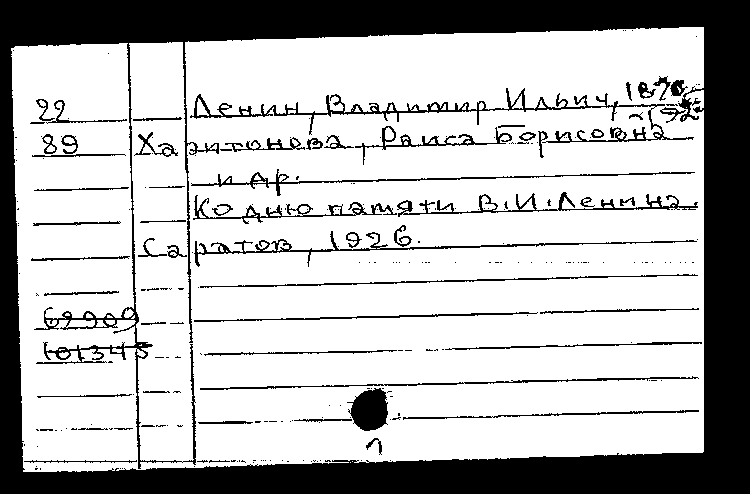 22 Ленин, Владимир Ильич, 1870-192
89 Харитонова, Раиса Борисовна
и др.
Ко дню памяти В.И.Ленина.
Саратов, 1926.
69909
101345